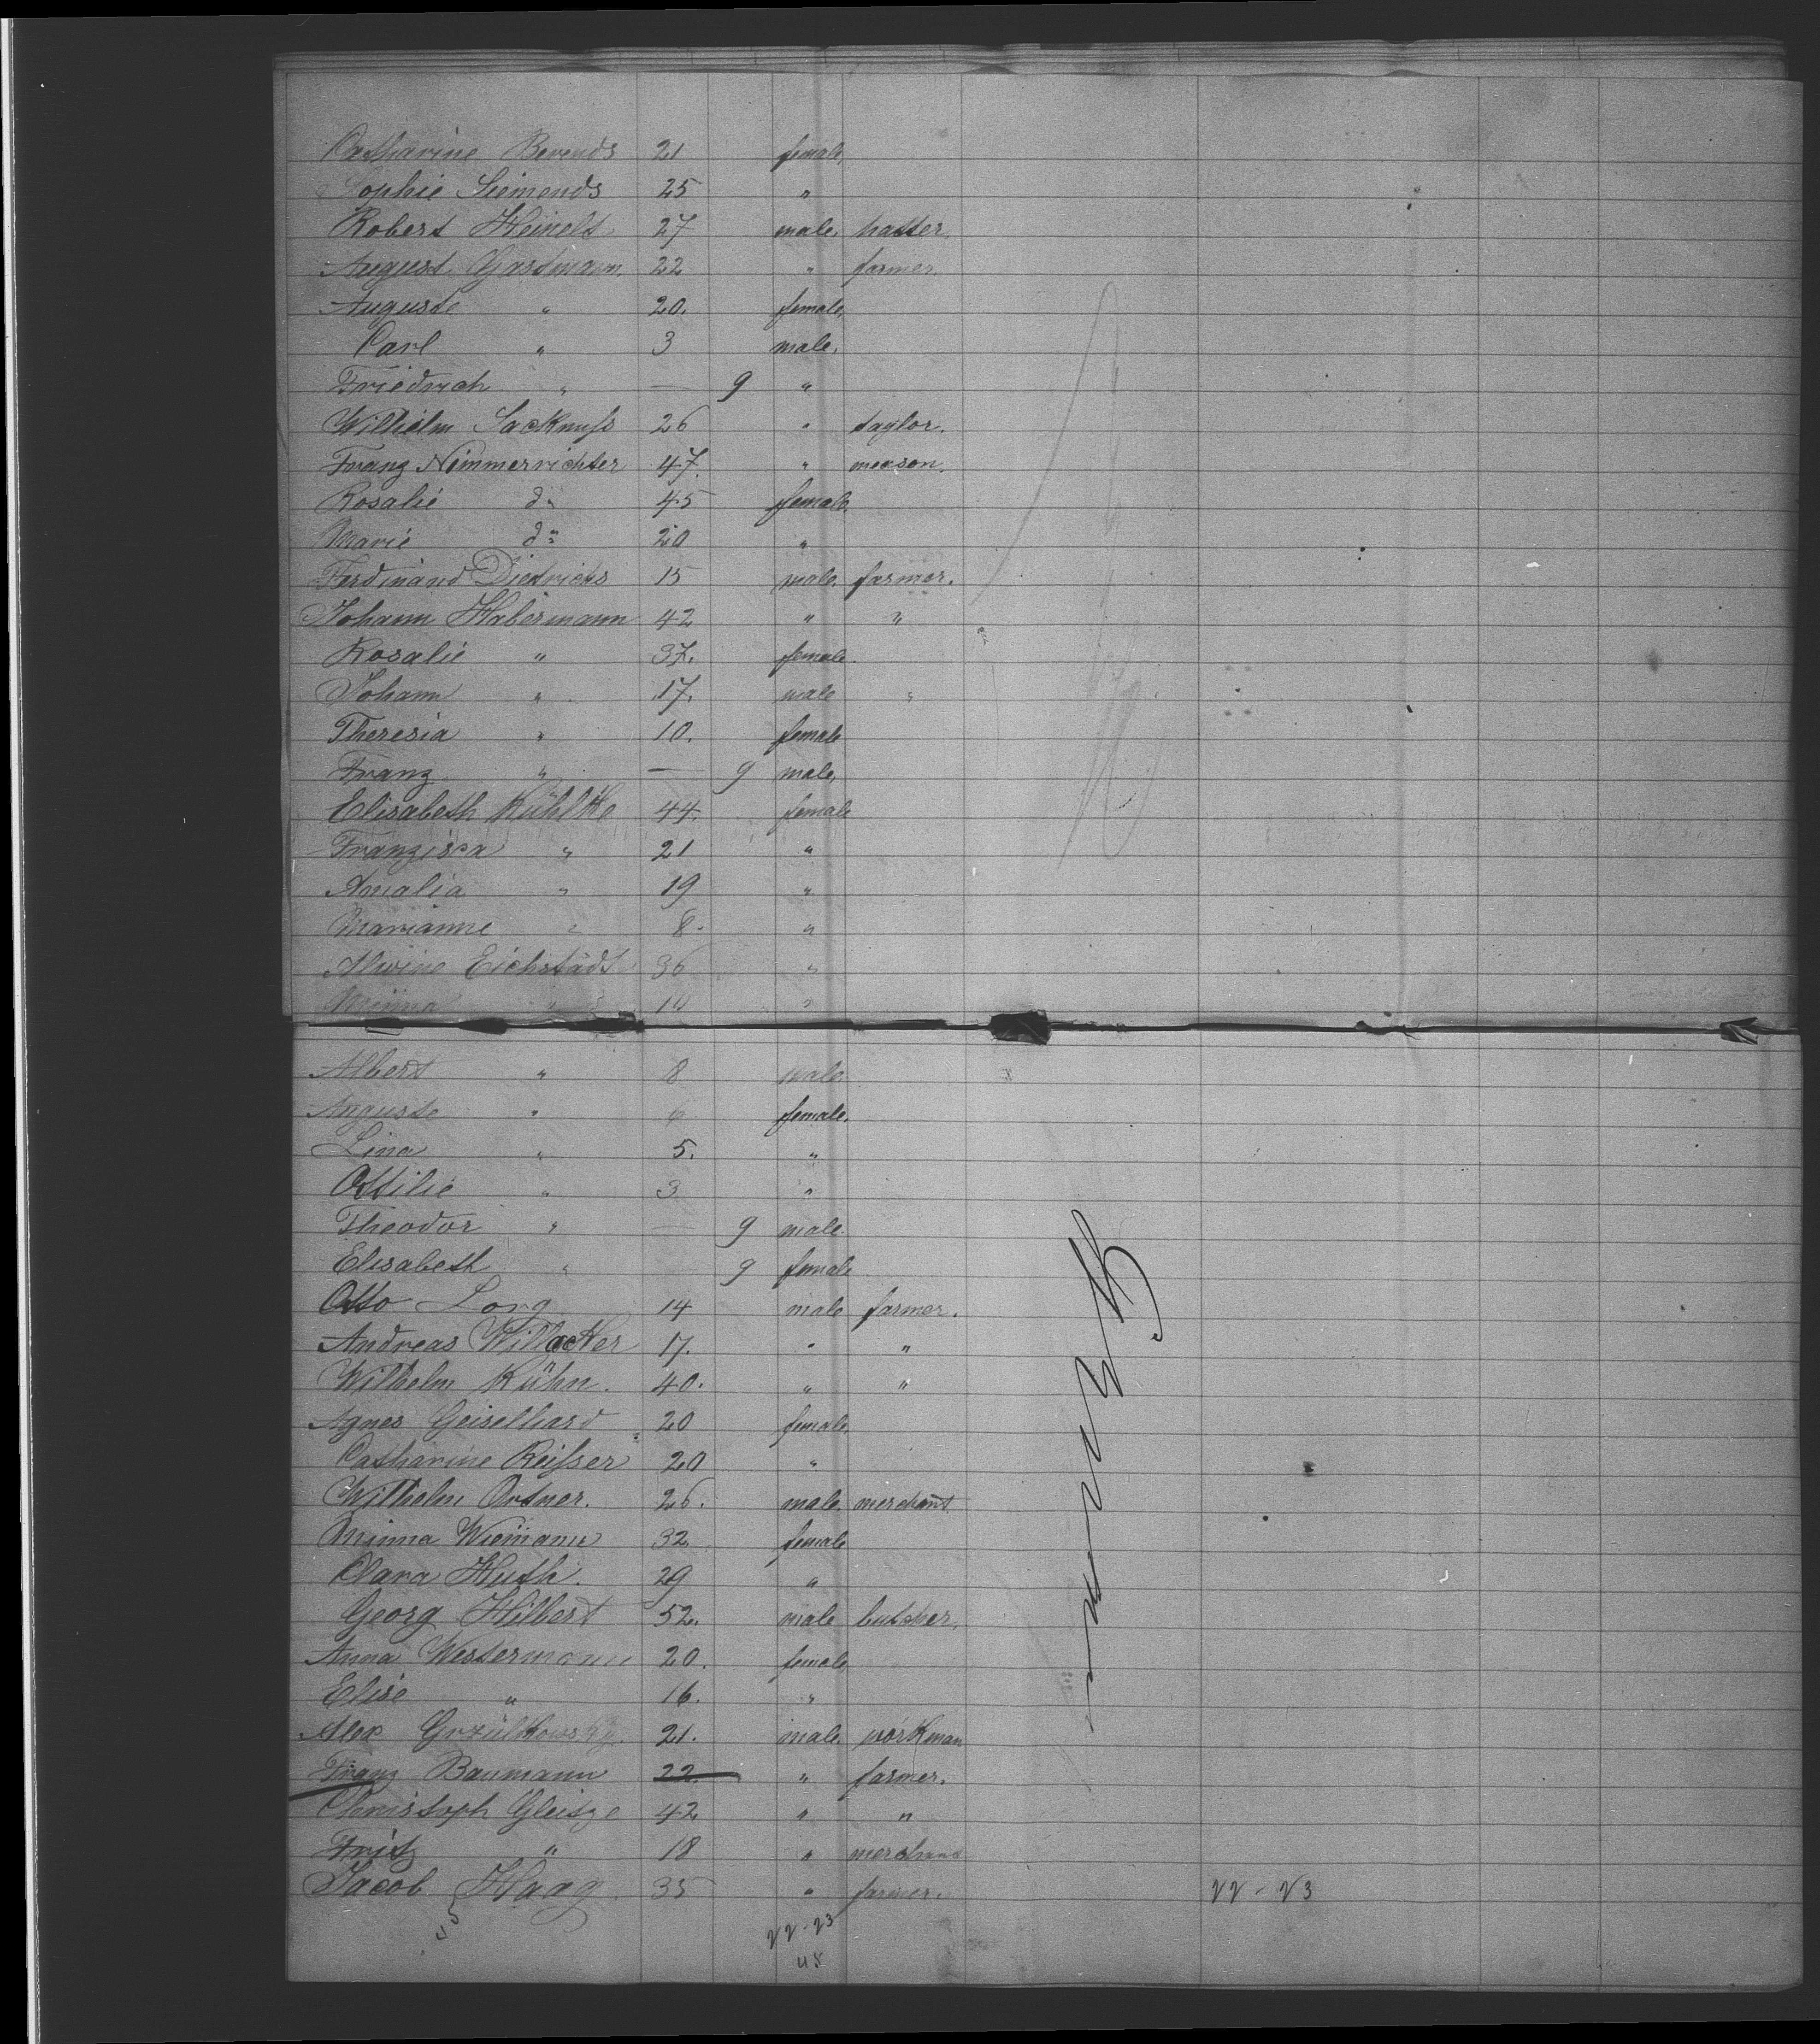 Catharine Berends 21 female,
Sophie Siemends 25 "
Robert Heinelt 27 male, hatter.
August Gastmann 22 " farmer.
Auguste " 20. female,
Carl " 3 male,
Friedrich " — 9 "
Wilhelm Sacknuſs 26 " taylor.
Franz Nimmerrichter 47. " meason.
Rosalie do 45 female.
Marie do 20 "
Ferdinand Diedrichs 15 male, farmer.
Johann Habermann 42 " "
Rosalie " 37. female.
Johann " 17. male "
Theresia " 10. female
Franz " — 9 male,
Elisabeth Kühlke 44. female
Franzisca " 21 "
Amalia " 19 "
Marianne " 8. "
Alwine Eichstädt 36 "
Minna " 10 "
Albert " 8 male
Auguste " 6 female.
Lina " 5. "
Ottilie " 3 "
Theodor " — 9 male.
Elisabeth " — 9 female
Otto Lorg 14 male farmer.
Andreas Willacker 17. " "
Wilhelm Kühn. 40. " "
Agnes Geiselhard 20 female,
Catharine Reiſser 20 "
Wilhelm Ortner. 26. male merchant
Minna Wiemann 32. female
Clara Huth. 29 "
Georg Hilbert 52. male butcher,
Anna Westermann 20. female
Elise " 16. "
Alex Grzülkowsky. 21. male workman
Franz Baumann 22. " farmer.
Christoph Gleitze 42 " "
Fritz " 18 " merchand
Jacob Haag 35 " farmer. 22 - 23
45 22 - 23
45